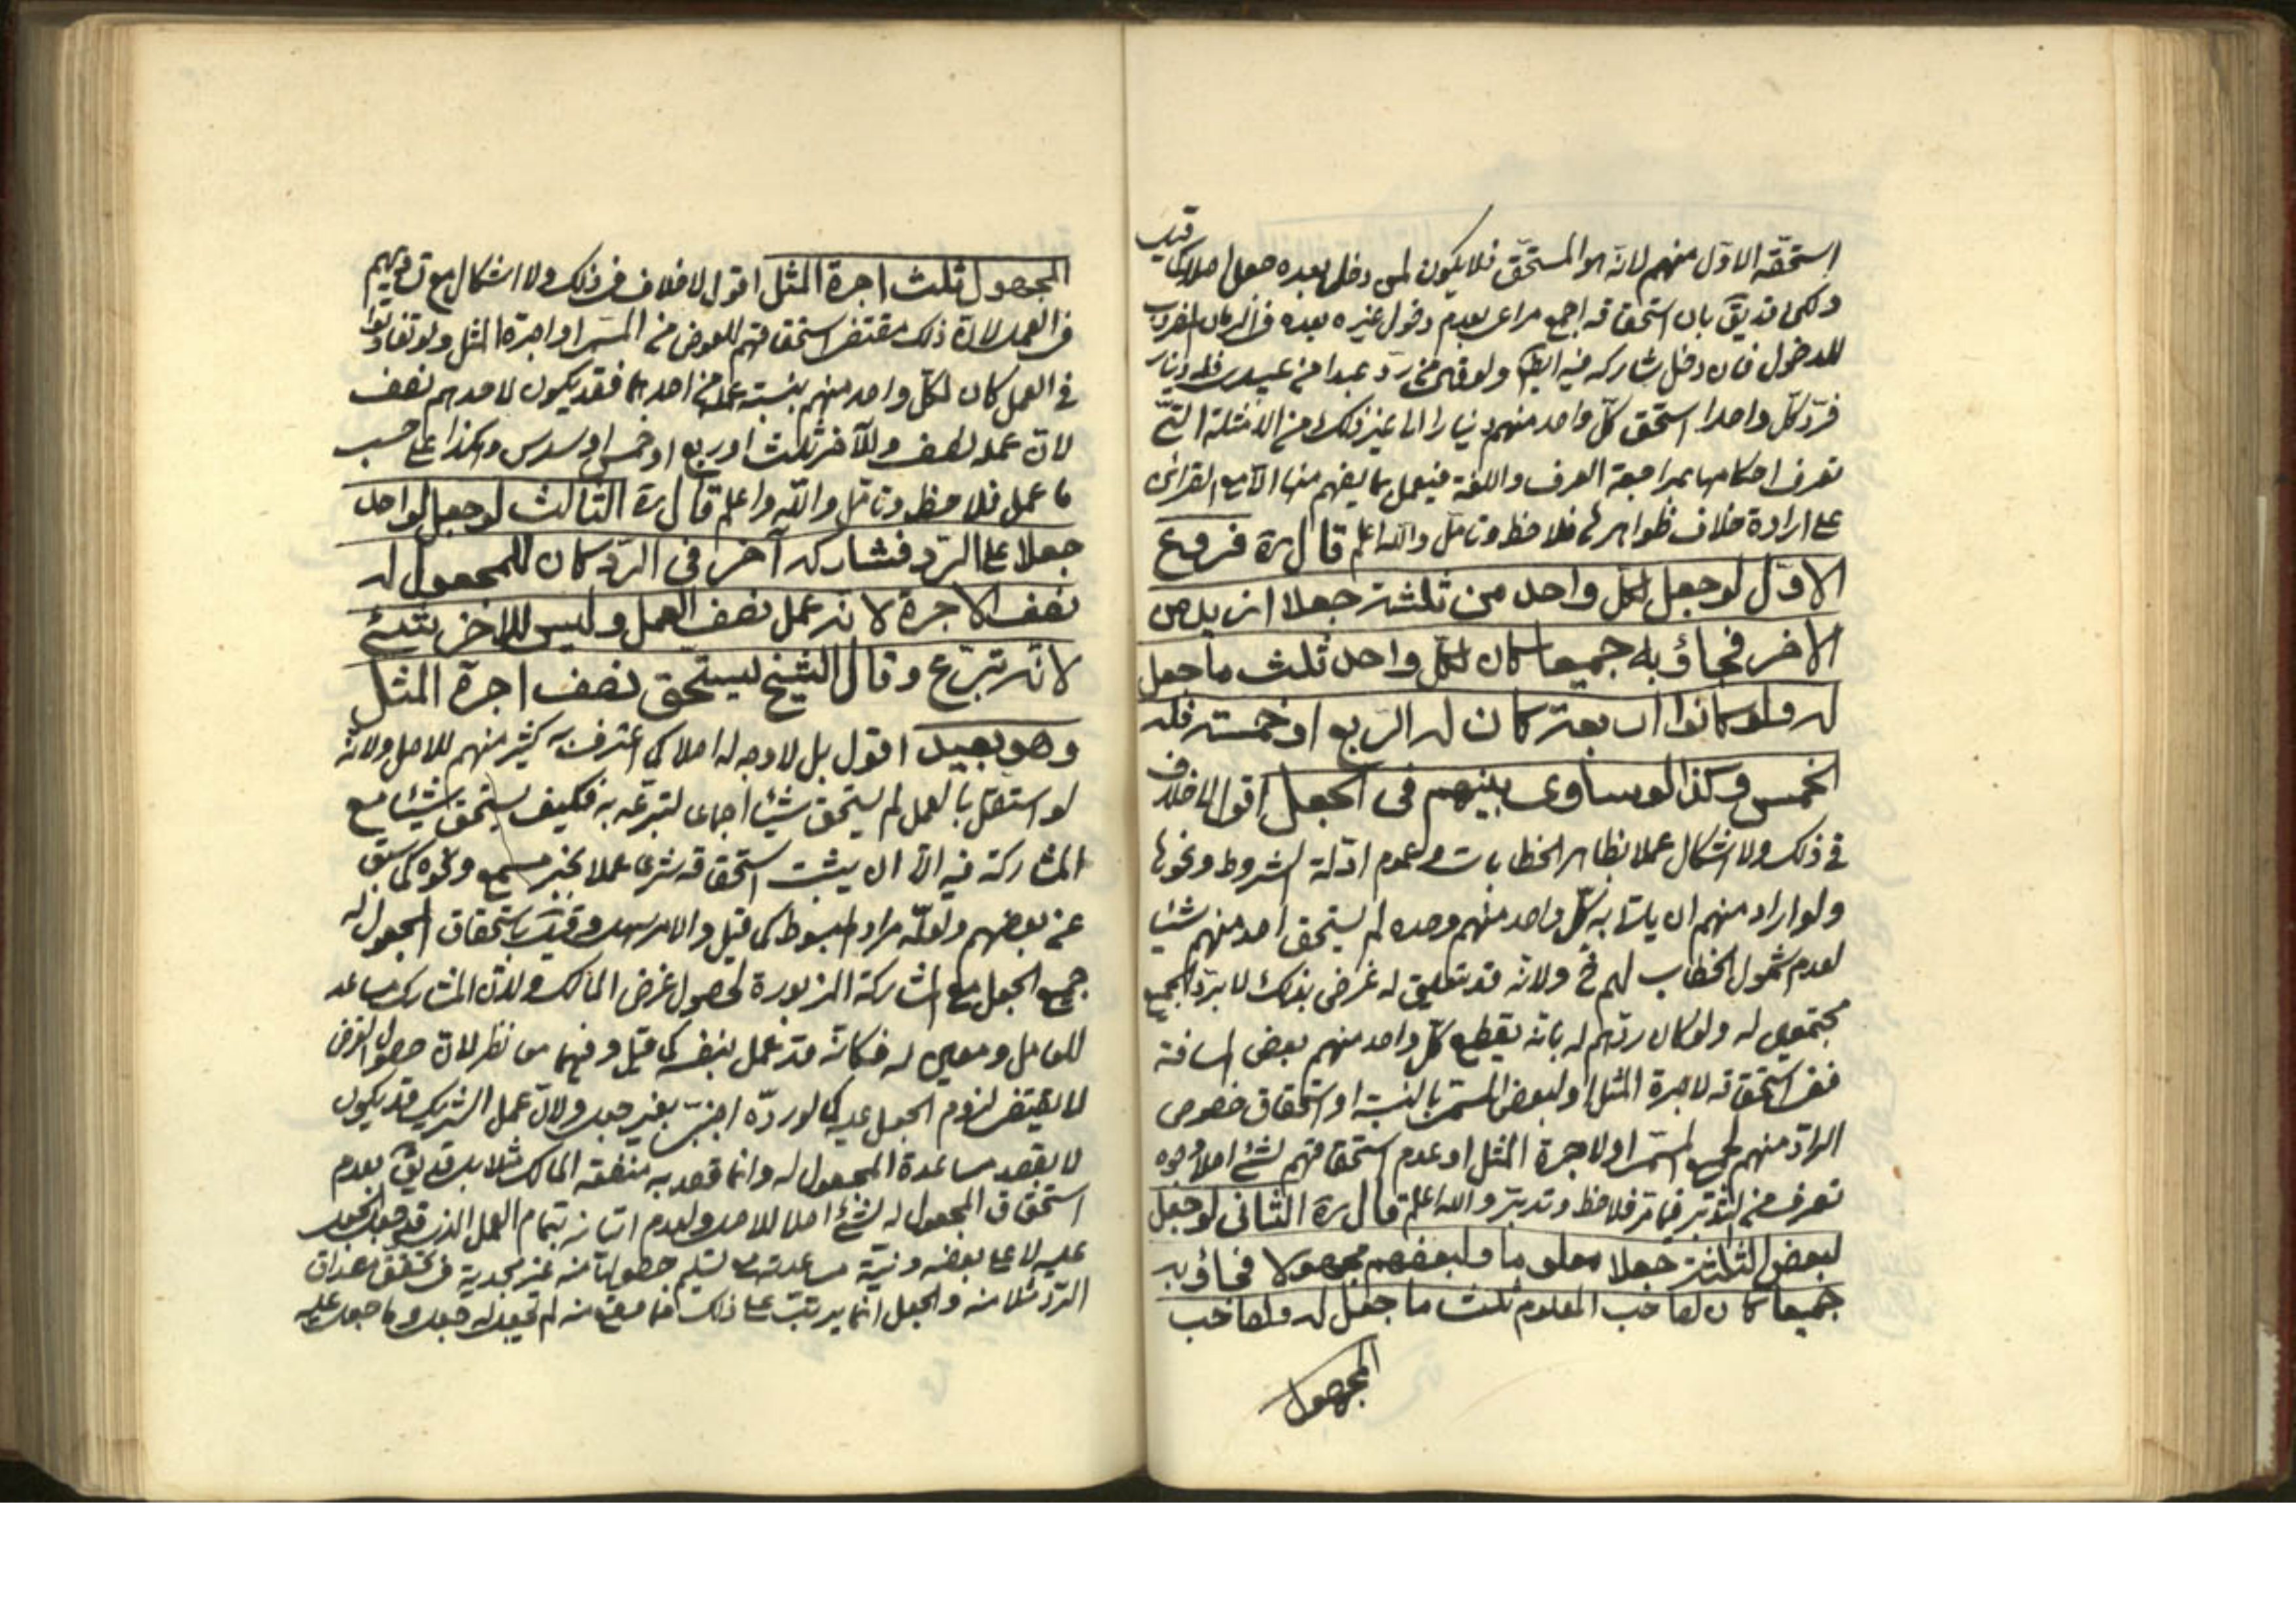 استحقه الاول منهم لانه هو المستحق فلا يكون لمن دخل بعده جعل اصلا كما قيل
ولكن قد يق بان استحقاقه اجمع مراعى بعدم دخول غيره بعده في الزمان المضروب
للدخول فان دخل شاركه فيه ايضا ولو قال من رد عبدا من عبيدي فله دينار
فرد كل واحدا استحق كل واحد منهم دينارا الى غير ذلك من الامثلة التي
تعرف احكامها بمراجعة العرف واللغة فيعمل بما يفهم منها الا مع القرائن
على ارادة خلاف ظواهرها فلاحظ وتامل والله اعلم قال ره فروع
الاول لو جعل لكل واحد من ثلثة جعلا ازيد من
الاخر فجاؤ به جميعا كان لكل واحد ثلث ما جعل
له ولو كانوا اربعة كان له الربع او خمسة فله
الخمس وكذا لو ساوى بينهم في الجعل اقول لا خلاف
في ذلك ولا اشكال عملا بظاهر الخطابات ولعموم ادلة الشروط ونحوها
ولو اراد منهم ان ياتى به كل واحد منهم وحده لم يستحق احد منهم شيئا
لعدم شمول الخطاب لهم ح ولانه قد تعليق له غرض بذلك لا برد الجميع
مجتمعين له ولو كان ردهم له بانه يقطع كل واحد منهم بعض المسافة
ففي استحقاقه لاجرة المثل او لبعض المسمى بالنسبة او استحقاق خصوص
الراد منهم لجميع المسمى او لاجرة المثل او عدم استحقاقهم لشئ اصلا وجوه
تعرف من التدبر فيما مر فلاحظ وتدبر والله اعلم قال ره الثاني لو جعل
لبعض الثلثة جعلا معلوما ولبعضهم مجهولا فجاؤ به
جميعا كان لصاحب المعلوم ثلث ما جعل له ولصاحب
المجهول
المجهول ثلث اجرة المثل اقول لا خلاف في ذلك ولا اشكال مع تساويهم
في العمل لان ذلك مقتضى استحقاقهم للعوض من المسمى او اجرة المثل ولو تفاوتوا
في العمل كان لكل واحد منهم بنسبة عمله من احدهما فقد يكون لاحدهم نصف
لان عمله نصف وللآخر ثلث او ربع او خمس او سدس وهكذا على حسب
ما عمل فلاحظ وتامل والله اعلم قال ره الثالث لو جعل لواحد
جعلا على الرد فشاركه آخر في الرد كان للمجعول له
نصف الاجرة لانه عمل نصف العمل وليس للاخر شئ
لانه تبرع وقال الشيخ يستحق نصف اجرة المثل
وهو بعيد اقول بل لا وجه له اصلا كما اعترف به كثير منهم للاصل ولانه
لو استقل بالعمل لم يستحق شيئا اجماعا لتبرعه به فكيف يستحق شيئا مع
المشاركة فيه الا ان يثبت استحقاقه شرعا عملا بخبر مسمع ونحوه كما سبق
عن بعضهم ولعله مراد المبسوط كما قيل والامر سهل وقيل باستحقاق المجعول له
جميع الجعل مع المشاركة المزبورة لحصول غرض المالك ولان المشارك مساعد
للعامل ومعين له فكانه قد عمل بنفسه كما قيل وفيهما معا نظر لان حصول الغرض
لا يقتضى لزوم الجعل عليه كما لو رده اجنبي بغير جعل ولان عمل الشريك قد يكون
لا بقصد مساعدة المجعول له وانما قصد به منفعة المالك مثلا بل قد يق بعدم
استحقاق المجعول له لشئ اصلا للاصل ولعدم اتيانه بتمام العمل الذي قد جعل الجعل
عليه لا على بعضه ونية مساعدته مع تسليم حصولها منه غير مجدية في تحقق مصداق
الرد مثلا منه والجعل انما يترتب على ذلك فما وقع منه لم يجعل له جعل وما جعل عليه